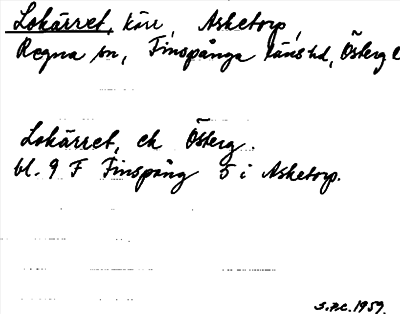 Lokärret, kärr, Asketorp,
Regna sn, Finspånga länshd, Österg l
Lokärret, ek Österg.
bl. 9 F Finspång 5 i Asketorp.
S.N.C. 1959.